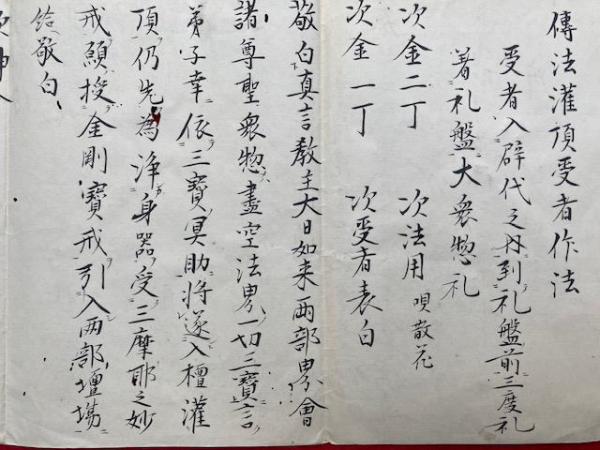 傳法灌頂受者作法
受者入辟代之内到礼盤前三度礼
着礼盤大衆惣礼
次金二丁 次法用 唄散花
次金一丁 次受者表白
敬白真言教主大日如来両部界會
諸尊聖衆惣盡空法界一切三寳言
弟子幸依三寳冥助将遂入檀灌
頂仍先為浄身器受三摩耶之妙
戒願授金剛寳戒引入両部壇場
給敬白
次神分